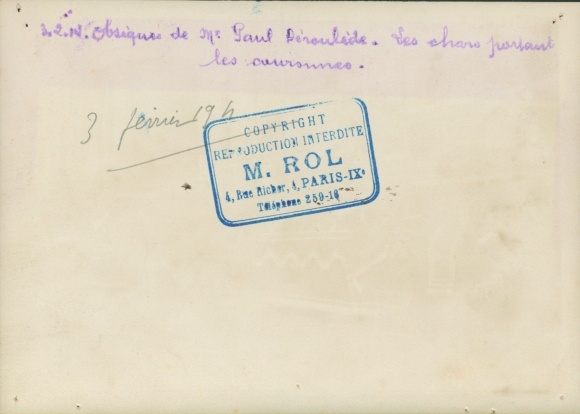 3.2.14. Obsèques de Mr. Paul Déroulède. Les chars portant
les couronnes.
3 février 1914
COPYRIGHT
REPRODUCTION INTERDITE
M. ROL
4, Rue Richer, 4, PARIS-IXe
Téléphone 259-16